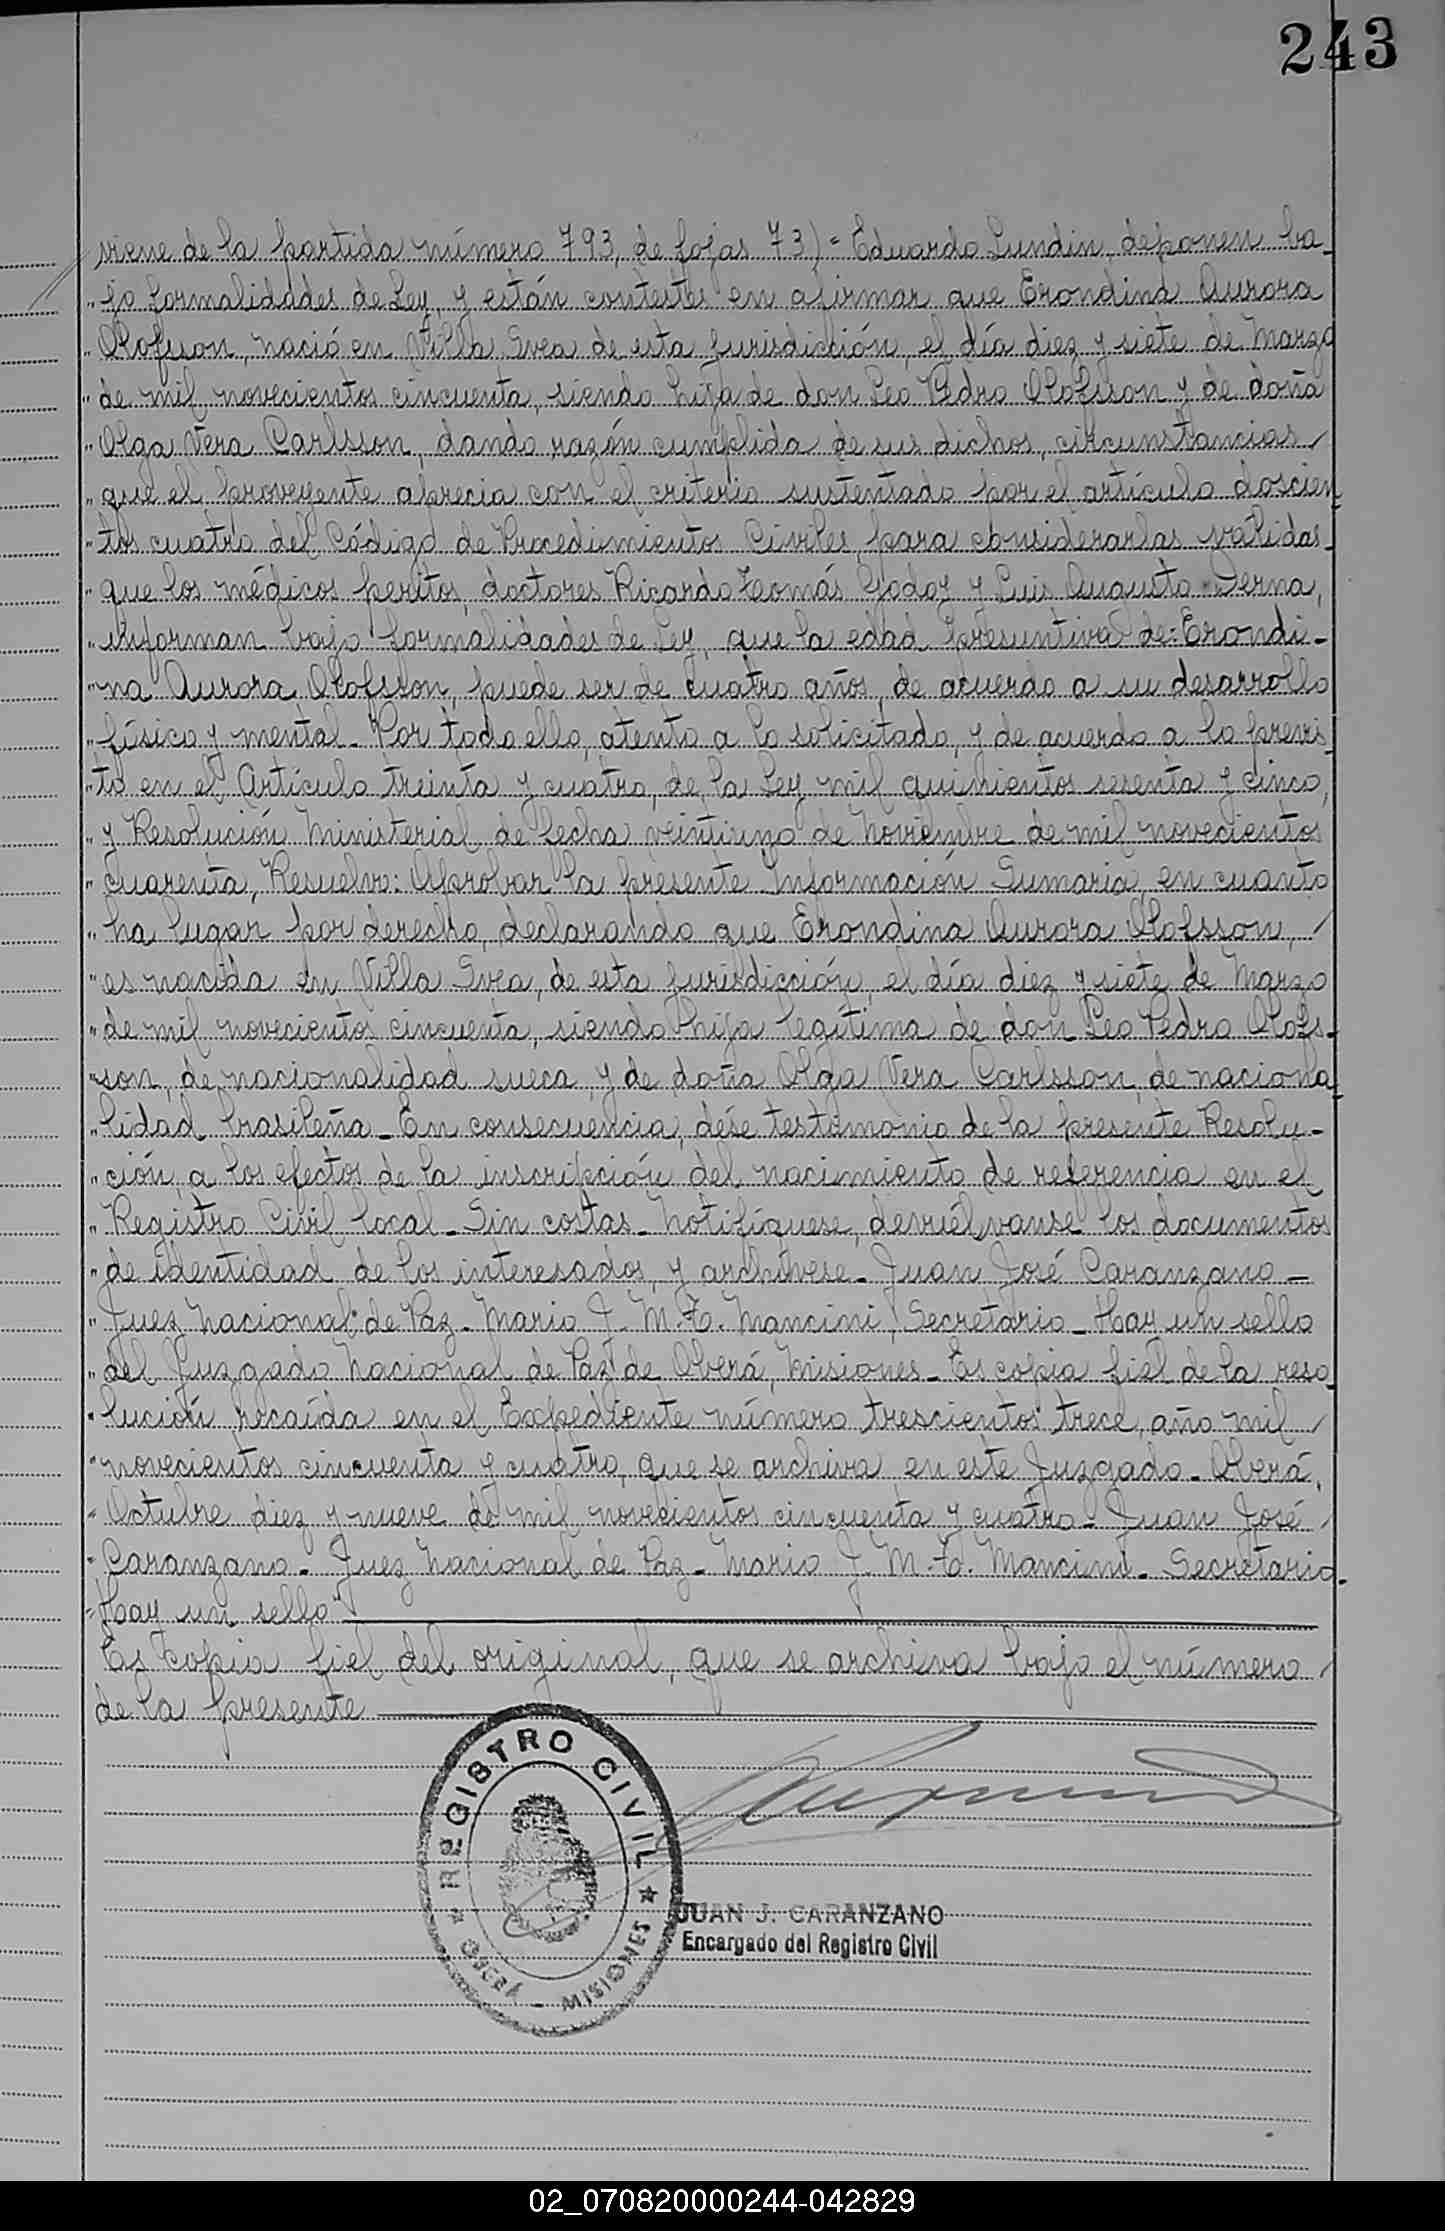 243
viene de la partida número 793, de fojas 73) = Eduardo Lundin, deponen ba_
" jo formalidades de Ley, y están contestes en afirmar que Erondina Aurora
" Olofsson, nació en Villa Svea de esta jurisdicción, el día diez y siete de Marzo
" de mil novecientos cincuenta, siendo hija de don Leo Pedro Olofsson y de doña
" Olga Vera Carlsson, dando razón cumplida de sus dichos, circunstancias /
" que el proveyente aprecia con el criterio sustentado por el artículo doscien_
" tos cuatro del Código de Procedimientos Civiles, para considerarlas válidas_
" que los médicos peritos, doctores Ricardo Tomás Godoy y Luis Augusto Derna,
" informan bajo formalidades de Ley, que la edad presuntiva de: Erondi-
" na Aurora Olofsson, puede ser de cuatro años, de acuerdo a su desarrollo
" físico y mental_ Por todo ello, atento a lo solicitado, y de acuerdo a lo previs_
" to en el Artículo treinta y cuatro, de la Ley mil quinientos sesenta y cinco,
" y Resolución Ministerial de fecha veintiuno de Noviembre de mil novecientos
" cuarenta, Resuelvo: Aprobar la presente Información Sumaria, en cuanto
" ha lugar por derecho, declarando que Erondina Aurora Olofsson, /
" es nacida en Villa Svea, de esta jurisdicción, el día diez y siete de Marzo
" de mil novecientos cincuenta, siendo hija legítima de don Leo Pedro Olofs-
" son, de nacionalidad sueca, y de doña Olga Vera Carlsson, de naciona_
" lidad brasileña_ En consecuencia, dése testimonio de la presente Resolu-
" ción, a los efectos de la inscripción del nacimiento de referencia en el
" Registro Civil local_ Sin costas_ Notifíquese, devuélvanse los documentos
" de identidad de los interesados, y archívese_ Juan José Caranzano_
" Juez Nacional de Paz_ Mario J. M. T. Mancini, Secretario_ Hay un sello
" del Juzgado Nacional de Paz de Oberá, Misiones_ Es copia fiel de la reso_
" lución recaída en el Expediente número trescientos trece, año mil /
" novecientos cincuenta y cuatro, que se archiva en este Juzgado_ Oberá,
" Octubre diez y nueve de mil novecientos cincuenta y cuatro_ Juan José /
" Caranzano_ Juez Nacional de Paz_ Mario J. M. T. Mancini_ Secretario_
" Hay un sello"
Es copia fiel del original, que se archiva bajo el número /
de la presente
REGISTRO CIVIL
OBERÁ - MISIONES
JUAN J. CARANZANO
Encargado del Registro Civil
02_070820000244-042829